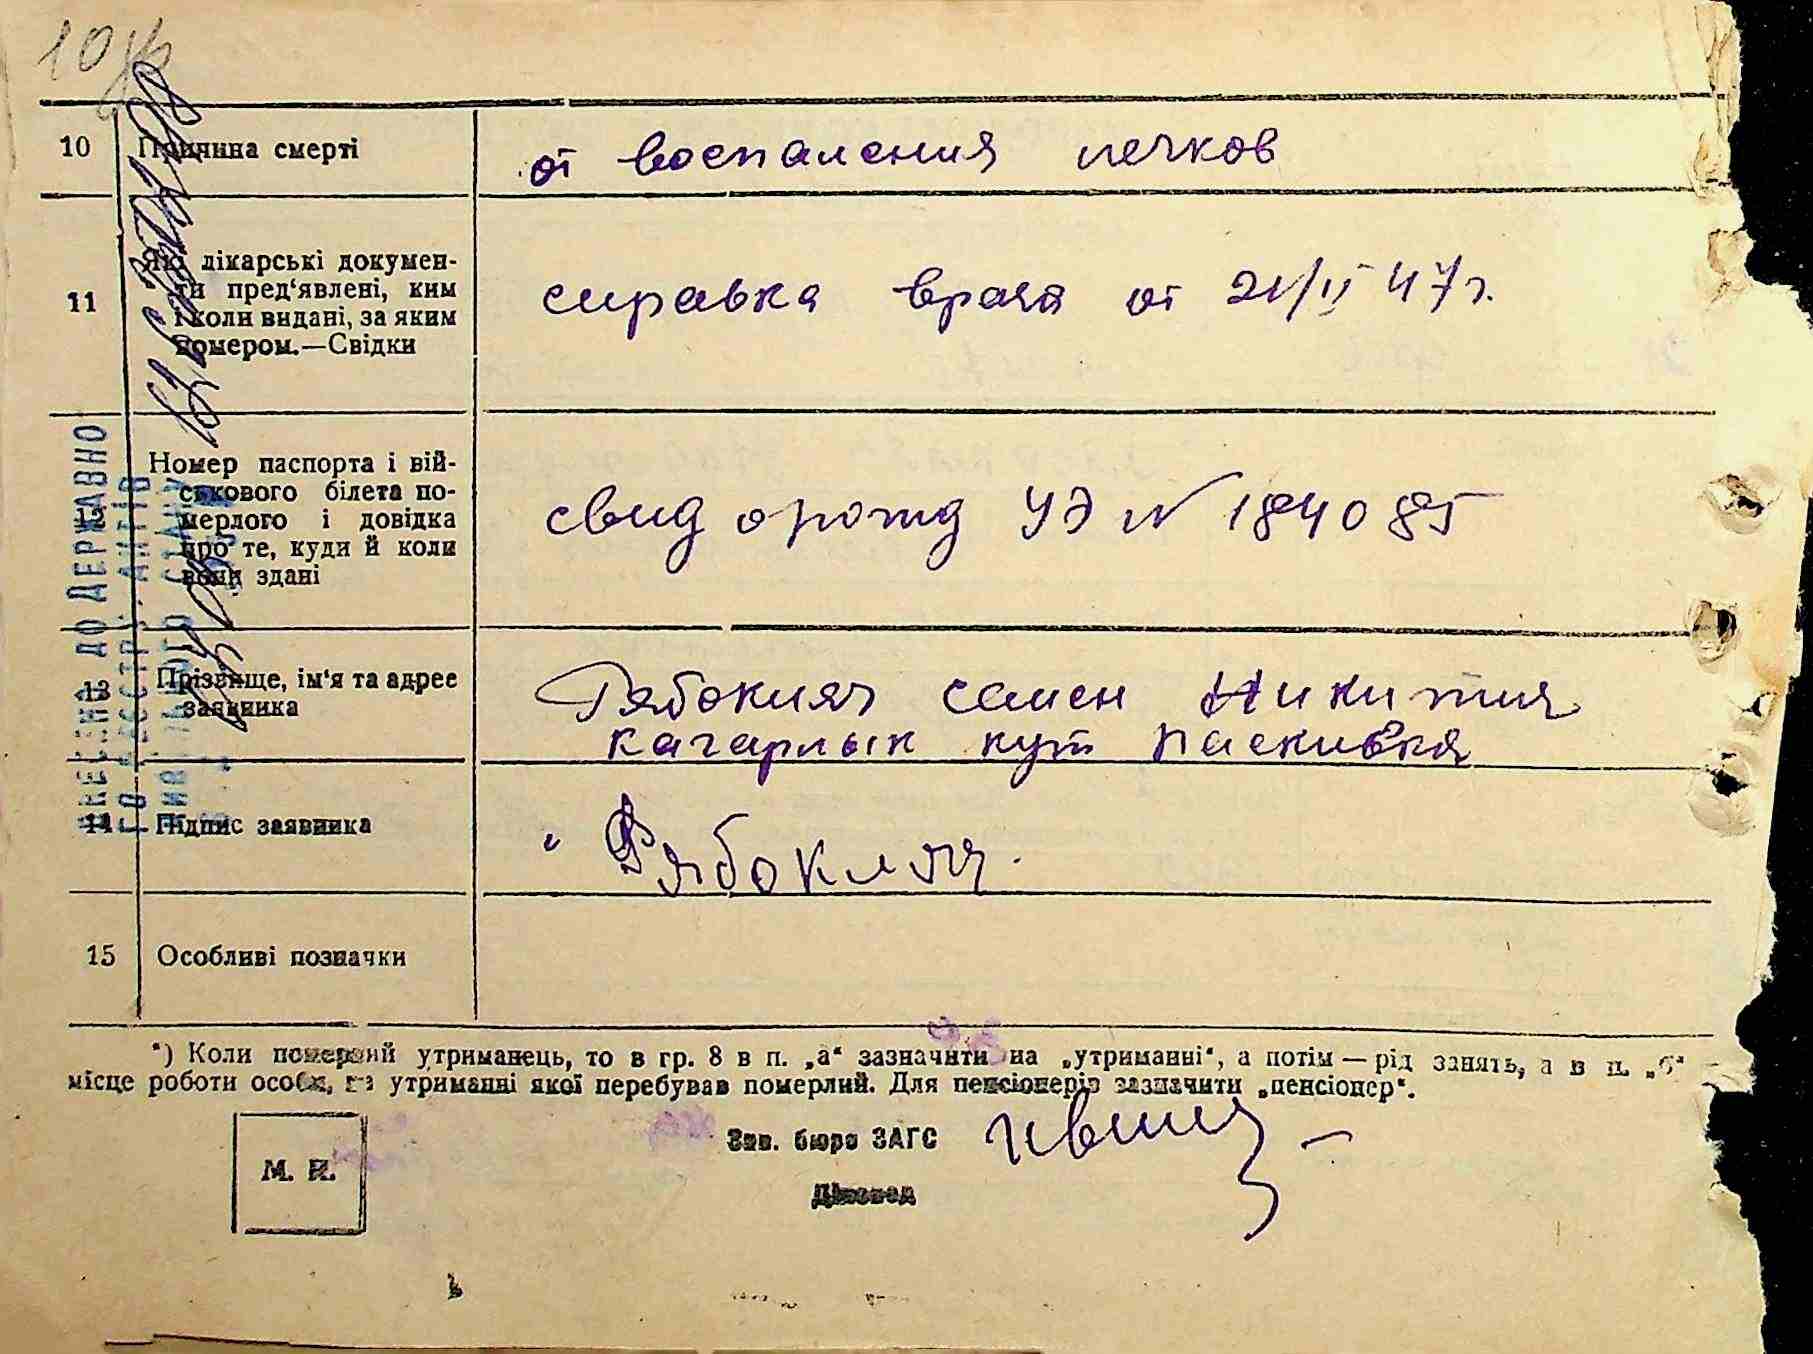 10
Причина смерті
от воспаления печков
11
Які лікарські докумен-
ти пред‘явлені, ким
і коли видані, за яким
номером.—Свідки
справка врача от 21/II 47г.
Номер паспорта і вій-
ськового білета по-
мерлого і довідка
про те, куди й коли
вони здані
свид о рожд УЭ N 184085
13
Прізвище, ім‘я та адрес
заявника
Рябокляч семен Никитич
кагарлык кут Паскивка
14
Підпис заявника
Рябокляч.
15
Особливі позначки
*) Коли померлий утриманець, то в гр. 8 в п. „а“ зазначити на „утриманні“, а потім — рід занять, а в п. „б“
місце роботи особи, на утриманні якої перебував померлий. Для пенсіонерів зазначити „пенсіонер“.
Зав. бюро ЗАГС
М. П.
Діловод
ВНЕСЕНО ДО ДЕРЖАВНО
ГО РЕЄСТРУ АКТІВ
ЦИВІЛЬНОГО СТАНУ